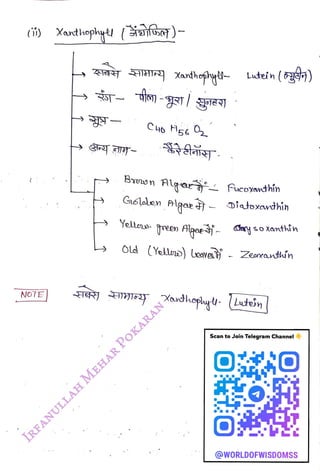 (ii) Xanthophyll (जैंथोफिल) –
→ सबसे सामान्य xanthophyll – Lutein (ल्युटीन)
→ रंग – पीला - भूरा / सुनहरा
→ सूत्र – C40 H56 O2
→ अन्य नाम – कैरेटीनॉस .
→ Brown Algae में – Fucoxanthin
→ Golden Algae में – Diatoxanthin
→ Yellow green Algae में –
→ Old (Yellow) leaves में – Zeaxanthin
NOTE सबसे सामान्य Xanthophyll - Lutein
IRFANULLAH MEHAR POKARAN
Scan to Join Telegram Channel 👇
@WORLDOFWISDOMSS